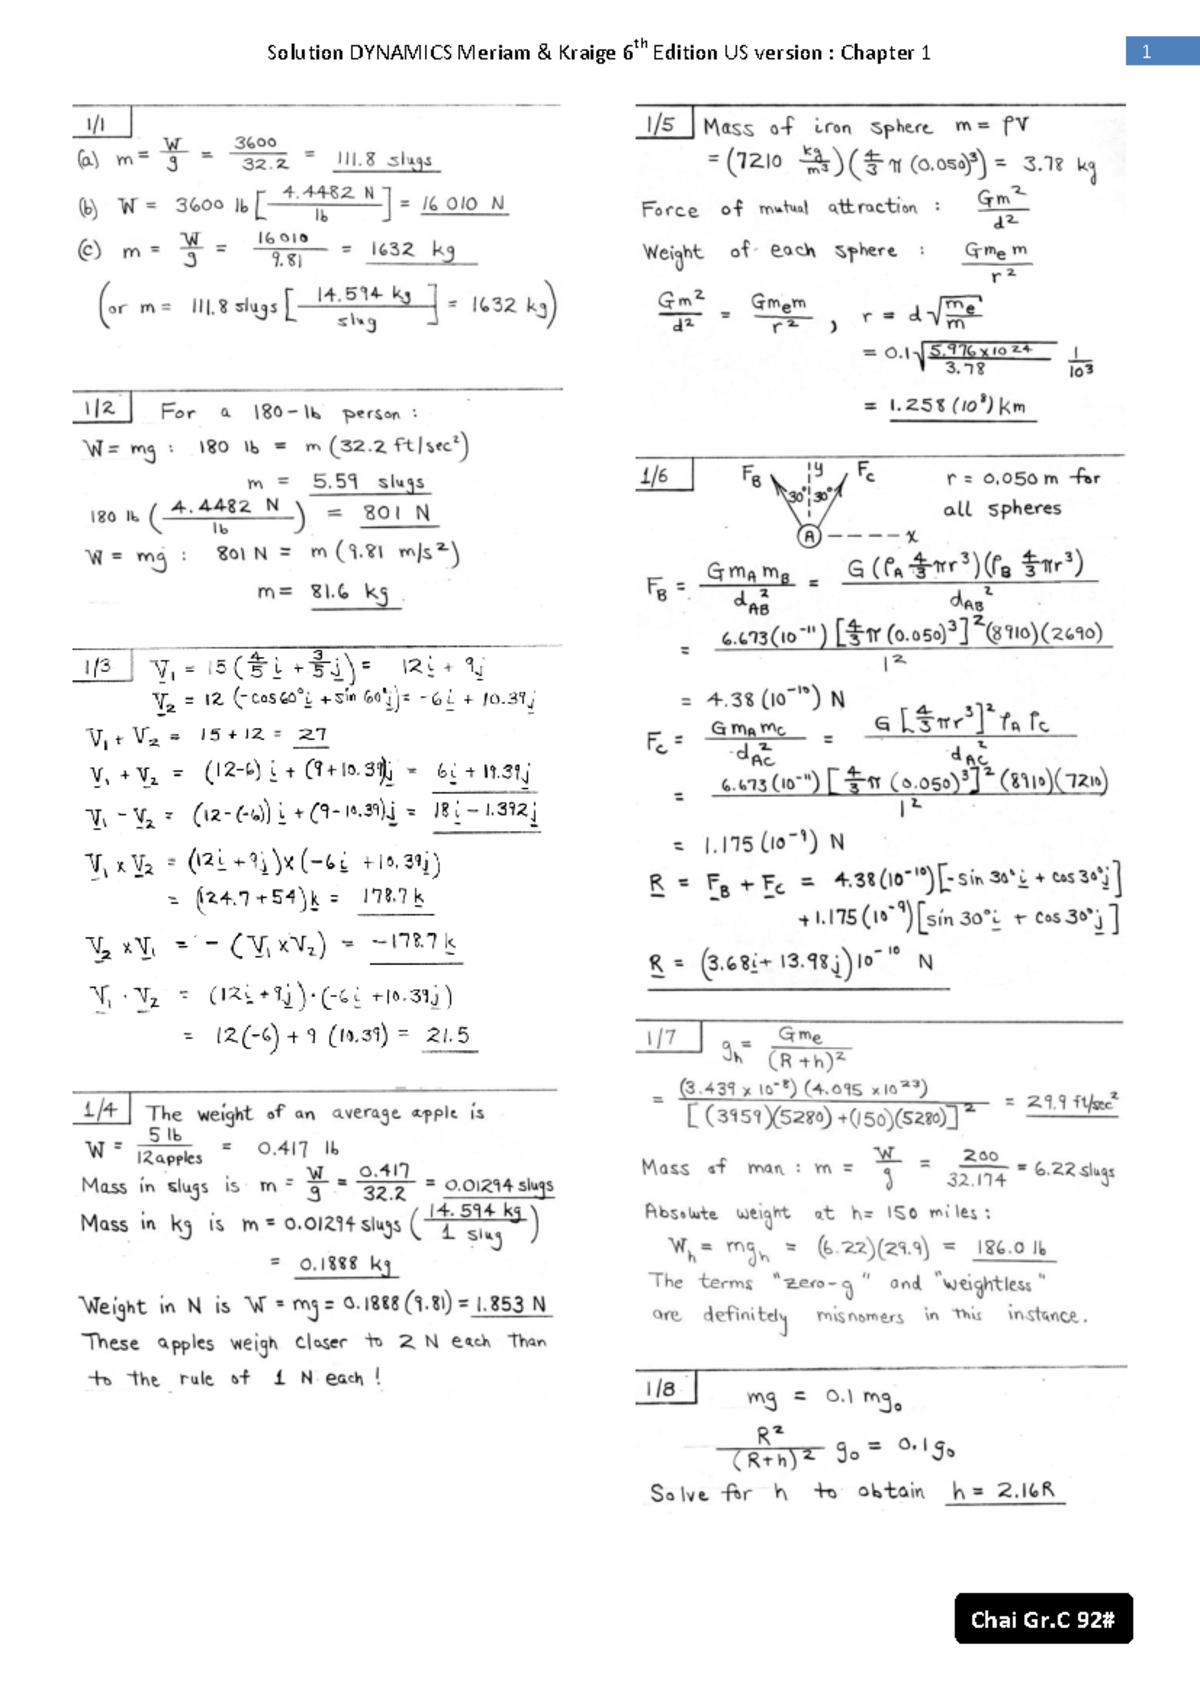 Solution DYNAMICS Meriam & Kraige 6th Edition US version : Chapter 1
1
1/1
(a) m = W/g = 3600/32.2 = 111.8 slugs
(b) W = 3600 lb [4.4482 N/lb] = 16 010 N
(c) m = W/g = 16010/9.81 = 1632 kg
(or m = 111.8 slugs [14.594 kg/slug] = 1632 kg)
1/2 For a 180-lb person :
W = mg : 180 lb = m (32.2 ft/sec²)
m = 5.59 slugs
180 lb (4.4482 N/lb) = 801 N
W = mg : 801 N = m (9.81 m/s²)
m = 81.6 kg
1/3 V₁ = 15 (4/5 i + 3/5 j) = 12i + 9j
V₂ = 12 (-cos60°i + sin 60°j) = -6i + 10.39j
V₁ + V₂ = 15 + 12 = 27
V₁ + V₂ = (12-6) i + (9+10.39)j = 6i + 19.39j
V₁ - V₂ = (12-(-6)) i + (9-10.39)j = 18i - 1.392j
V₁ x V₂ = (12i + 9j) x (-6i + 10.39j)
= (124.7 + 54) k = 178.7 k
V₂ x V₁ = - (V₁ x V₂) = -178.7 k
V₁ · V₂ = (12i + 9j) · (-6i + 10.39j)
= 12(-6) + 9 (10.39) = 21.5
1/4 The weight of an average apple is
W = 5 lb/12 apples = 0.417 lb
Mass in slugs is m = W/g = 0.417/32.2 = 0.01294 slugs
Mass in kg is m = 0.01294 slugs (14.594 kg/1 slug)
= 0.1888 kg
Weight in N is W = mg = 0.1888 (9.81) = 1.853 N
These apples weigh closer to 2 N each than
to the rule of 1 N each !
1/5 Mass of iron sphere m = ρV
= (7210 kg/m³) (4/3 π (0.050)³) = 3.78 kg
Force of mutual attraction : Gm²/d²
Weight of each sphere : Gmₑm/r²
Gm²/d² = Gmₑm/r² , r = d √(mₑ/m)
= 0.1 √(5.976x10²⁴/3.78) 1/10³
= 1.258 (10⁸) km
1/6 F_B y F_C r = 0.050 m for
30° 30° all spheres
A x
F_B = G m_A m_B/d_AB² = G (ρ_A 4/3 πr³)(ρ_B 4/3 πr³)/d_AB²
= 6.673(10⁻¹¹) [4/3 π (0.050)³]² (8910)(2690)/1²
= 4.38 (10⁻¹⁰) N
F_C = G m_A m_C/d_AC² = G [4/3 πr³]² ρ_A ρ_C/d_AC²
= 6.673(10⁻¹¹) [4/3 π (0.050)³]² (8910)(7210)/1²
= 1.175 (10⁻⁹) N
R = F_B + F_C = 4.38(10⁻¹⁰)[-sin 30°i + cos 30°j]
+ 1.175 (10⁻⁹) [sin 30°i + cos 30°j]
R = (3.68i + 13.98j) 10⁻¹⁰ N
1/7 g_h = Gmₑ/(R + h)²
= (3.439 x 10⁻⁸) (4.095 x10²³)/[(3959)(5280) + (150)(5280)]² = 29.9 ft/sec²
Mass of man : m = W/g = 200/32.174 = 6.22 slugs
Absolute weight at h = 150 miles :
W_h = mg_h = (6.22)(29.9) = 186.0 lb
The terms "zero-g" and "weightless"
are definitely misnomers in this instance.
1/8 mg = 0.1 mg₀
R²/(R+h)² g₀ = 0.1 g₀
Solve for h to obtain h = 2.16R
Chai Gr.C 92#